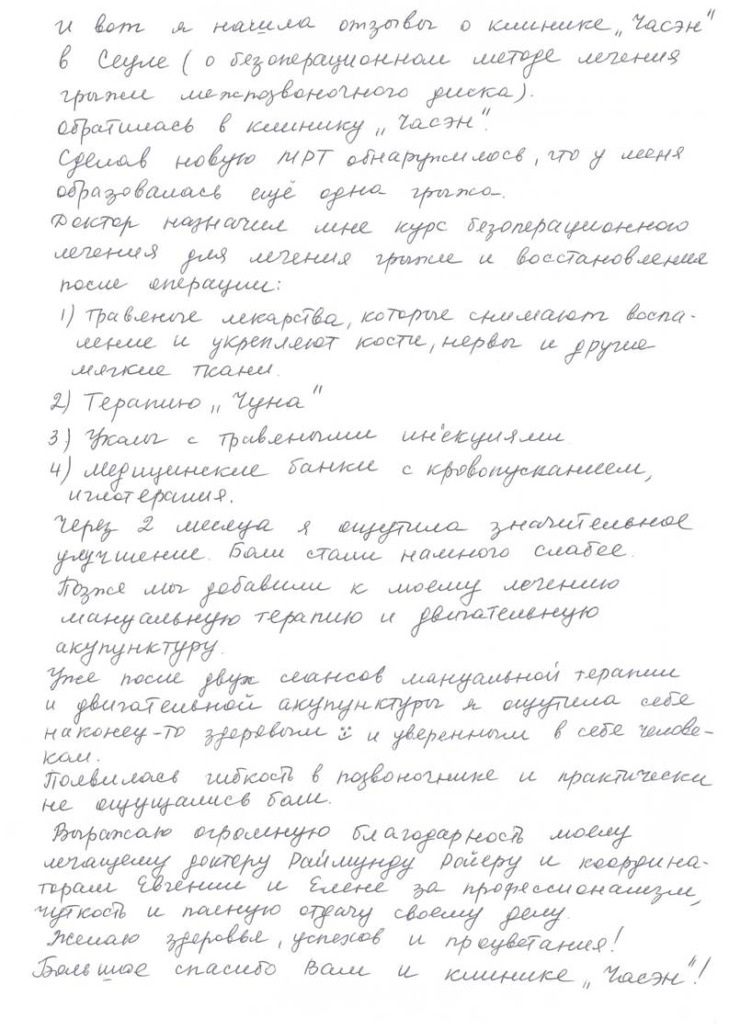 И вот я нашла отзывы о клинике „Часэн"
в Сеуле (о безоперационном методе лечения
грыжи межпозвоночного диска).
Обратилась в клинику „Часэн".
Сделав новую МРТ обнаружилось, что у меня
образовалась ещё одна грыжа.
Доктор назначил мне курс безоперационного
лечения для лечения грыжи и восстановления
после операции:
1) травяные лекарства, которые снимают воспа-
ление и укрепляют кости, нервы и другие
мягкие ткани.
2) Терапию „Чуна"
3) Уколы с травяными инъекциями
4) медицинские банки с кровопусканием,
иглотерапия.
Через 2 месяца я ощутила значительное
улучшение. Боли стали намного слабее.
Позже мы добавили к моему лечению
мануальную терапию и двигательную
акупунктуру.
Уже после двух сеансов мануальной терапии
и двигательной акупунктуры я ощутила себя
наконец-то здоровым и уверенным в себе челове-
ком.
Появилась гибкость в позвоночнике и практически
не ощущались боли.
Выражаю огромную благодарность моему
лечащему доктору Раймунду Ройеру и координа-
торам Евгении и Елене за профессионализм,
чуткость и полную отдачу своему делу.
Желаю здоровья, успехов и процветания!
Большое спасибо Вам и клинике „Часэн"!